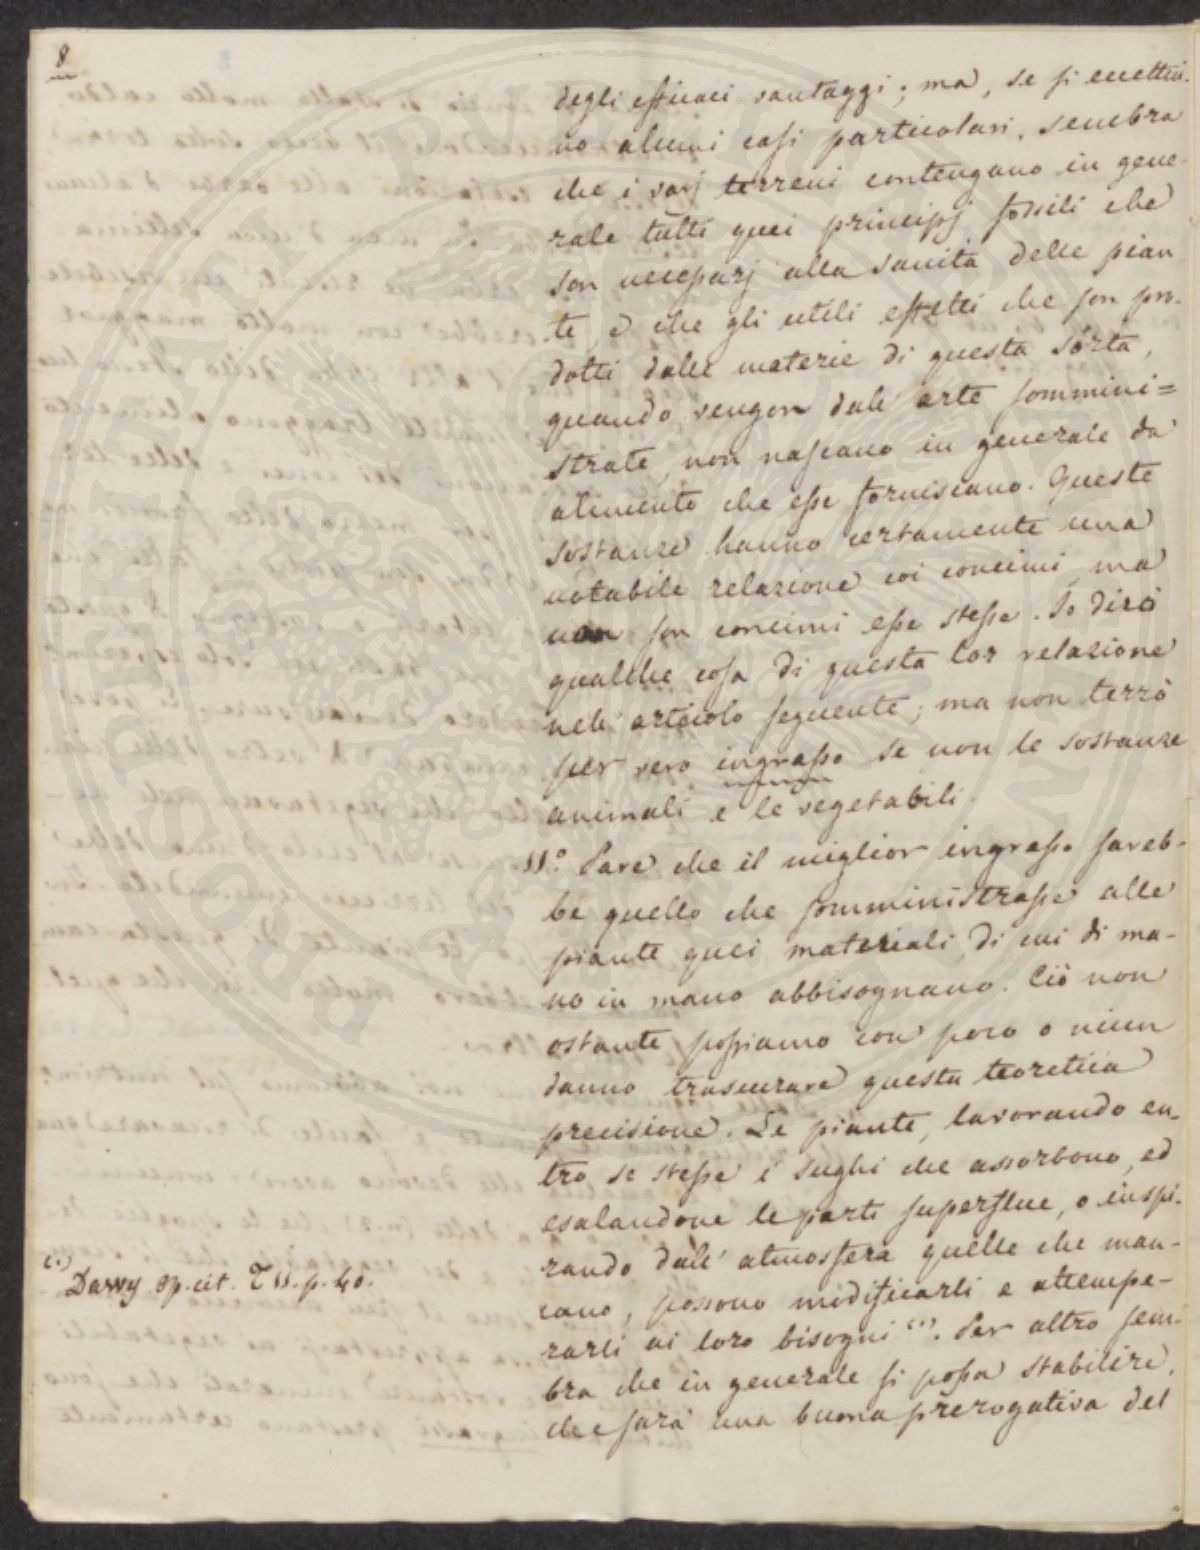 8
degli efficaci vantaggi; ma, se si eccettui-
no alcuni casi particolari, sembra
che i varj terreni contengano in gene-
rale tutti quei principj fossili che
son necessarj alla sanità delle pian
te, e che gli utili effetti che son pro-
dotti dalle materie di questa sorta,
quando vengon dall'arte sommini=
strate, non nascano in generale da
alimento che esse forniscano. Queste
sostanze hanno certamente una
notabile relazione coi concimi, ma
non son concimi esse stesse. Io dirò
qualche cosa di questa lor relazione
nell'articolo seguente; ma non terrò
per vero ingrasso se non le sostanze
animali e le vegetabili.
11.° Pare che il miglior ingrasso sareb-
be quello che somministrasse alle
piante quei materiali, di cui di ma-
no in mano abbisognano. Ciò non
ostante possiamo con poco o niun
danno trascurare questa teoretica
precisione. Le piante, lavorando en-
tro se stesse i sughi che assorbono, ed
esalandone le parti superflue, o inspi-
rando dall'atmosfera quelle che man-
cano, possono modificarli e attempe-
rarli ai loro bisogni (1). Per altro sem-
bra che in generale si possa stabilire,
che sarà una buona prerogativa del
(1)
Davvy op. cit. T 11. p. 40.